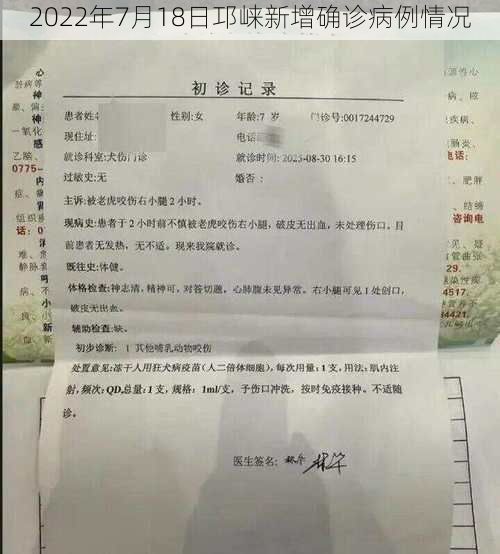 2022年7月18日邛崃新增确诊病例情况
初诊记录
患者姓名 性别:女 年龄:7 岁 门诊号:0017244729
现住址: 电话
就诊科室:犬伤门诊 就诊时间:2025-08-30 16:15
过敏史:无 婚否:
主诉:被老虎咬伤右小腿2小时。
现病史:患者于2小时前不慎被老虎咬伤右小腿,破皮无出血,未处理伤口。目
前患者无发热,无不适。现来我院就诊。
既往史:体健。
体格检查:神志清,精神可,对答切题。心肺腹未见异常。右小腿可见1处创口,
破皮无出血。
辅助检查:缺。
初步诊断: 1 其他哺乳动物咬伤
处置意见:冻干人用狂犬病疫苗(人二倍体细胞),每次用量:1支,用法:肌内注
射,频次:QD,总量:1支,规格:1ml/支,予伤口冲洗,按时免疫接种。不适随
诊。
医生签名:
心
脏病
神
累、
一氧化
感
乙脑、
0775-
症、
组织
难、
静脉
病、
良、
新
源性心
疾病、
电话:
、结缔
咨询电
见、疑
管曲张
4517.
感染性
营养于
4510